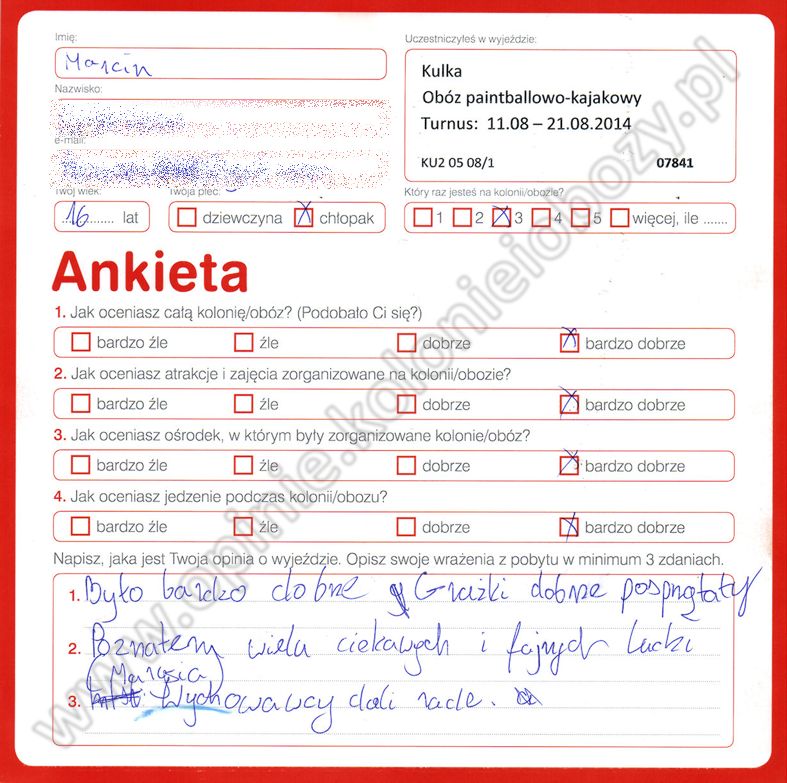 Imię:
Marcin
Uczestniczyłeś w wyjeździe:
Kulka
Obóz paintballowo-kajakowy
Turnus: 11.08 – 21.08.2014
KU2 05 08/1 07841
Nazwisko:
e-mail:
Twój wiek:
16 lat
Twoja płeć:
dziewczyna X chłopak
Który raz jesteś na kolonii/obozie?
1 2 X 3 4 5 więcej, ile .......
Ankieta
1. Jak oceniasz całą kolonię/obóz? (Podobało Ci się?)
bardzo źle źle dobrze X bardzo dobrze
2. Jak oceniasz atrakcje i zajęcia zorganizowane na kolonii/obozie?
bardzo źle źle dobrze X bardzo dobrze
3. Jak oceniasz ośrodek, w którym były zorganizowane kolonie/obóz?
bardzo źle źle dobrze X bardzo dobrze
4. Jak oceniasz jedzenie podczas kolonii/obozu?
bardzo źle źle dobrze X bardzo dobrze
Napisz, jaka jest Twoja opinia o wyjeździe. Opisz swoje wrażenia z pobytu w minimum 3 zdaniach.
1. Było bardzo dobrze dobrze posprzątały
2. Poznałem wielu ciekawych i fajnych ludzi
3. Wychowawcy dali rade.
www.opinie.kolonieiobozy.pl